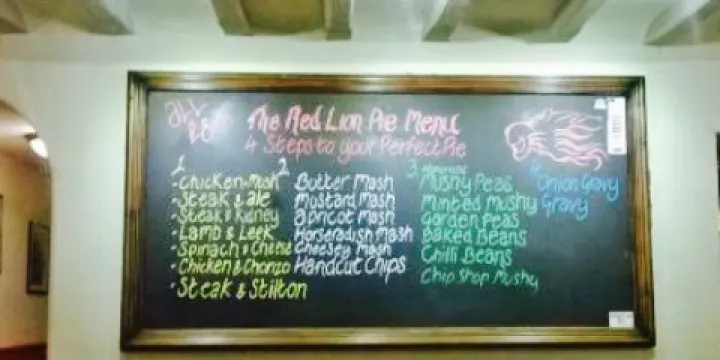 ALL
The Red Lion Pie Menu
4 Steps to your Perfect Pie
1
- Chicken & Mush
- Steak & ale
- Steak & Kidney
- Lamb & Leek
- Spinach & Cheese
- Chicken & Chorizo
- Steak & Stilton
2
Butter Mash
Mustard Mash
Apricot Mash
Horseradish Mash
Cheesey Mash
Handcut Chips
3.
Mushy Peas
Minted Mushy
Garden Peas
Baked Beans
Chilli Beans
Chip Shop Mushy
Onion Gravy
Gravy